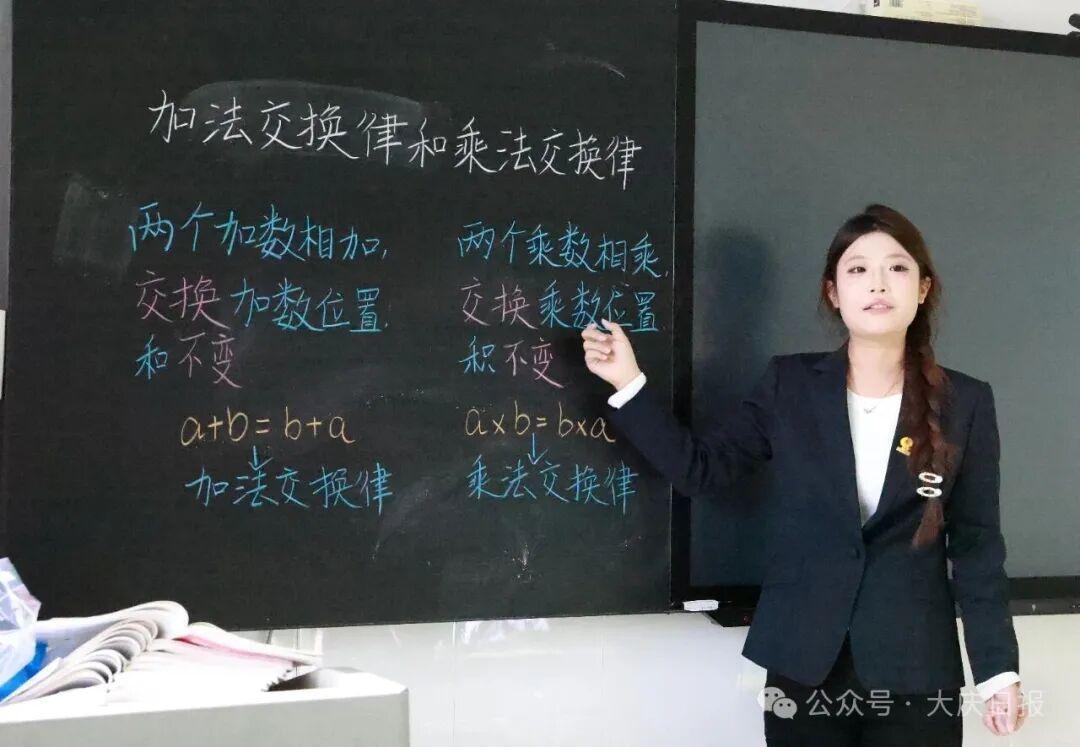 加法交换律和乘法交换律
两个加数相加,
交换加数位置.
和不变
a+b=b+a
加法交换律
两个乘数相乘,
交换乘数位置.
积不变
a×b=b×a
乘法交换律
公众号·大庆日报